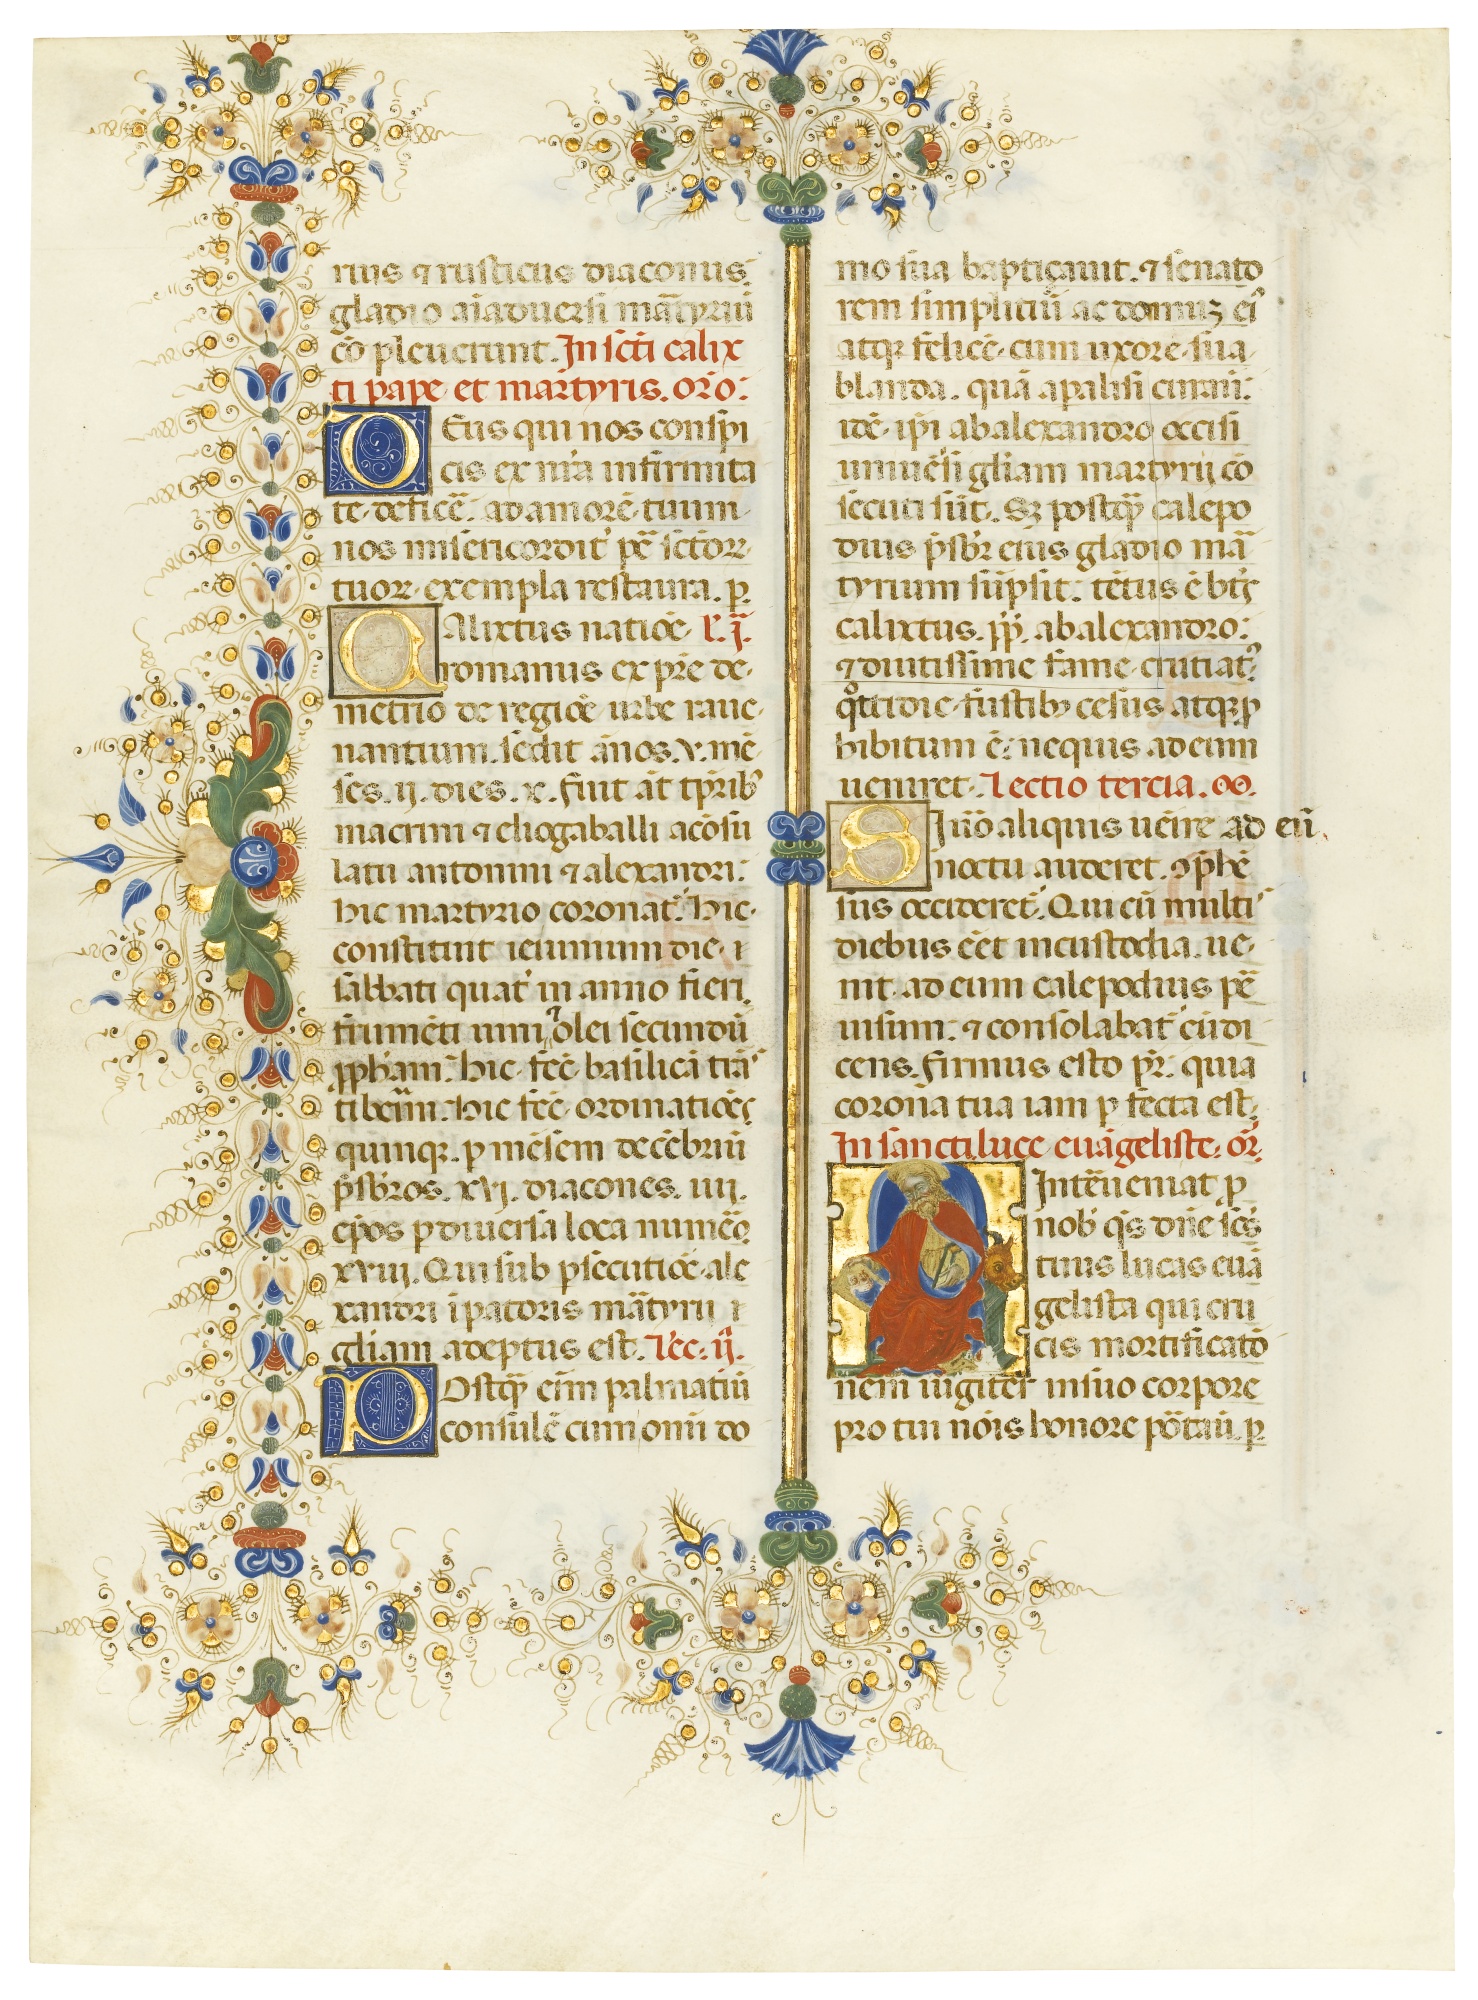 rius ⁊ rusticus diaconus
gladio aīaduersi mr̄tyriū
cō pleuerunt. In scti calix
ti pape et martyris. oro:
DEus qui nos conspi
cis ex nr̄a infirmita
te deficē. ad amorē tuum
nos misericordit' pẽ sctorꝝ
tuorꝝ exempla restaura. ꝑ
CAlixtus natiõe. l'. j̄.
romanus ex pr̄e de
metrio de regiõe urbe rauē
nantium. sedit ānos. v. mē
ses. ij. dies. x. fuit āt tp̄rib'
macrini ⁊ eliogaballi a cōsu
latu antonini ⁊ alexandri:
hic martyrio coronat'. Hic
constituit ieiunium die
sabbati quat' in anno fieri
frumēti uini olei secundū
ꝓphām. Hic fec̄ basilicā trās
tiberim. Hic fec̄ ordinatiōes
quinqꝫ. ꝑ mēsem decēbriū
p̄sbr̄os. xvj. diacones. iiij.
ep̄os ꝑ diuersa loca numēo
xviij. Qui sub ꝑsecutiõe ale
xandri īpatoris mr̄tyrii
gliam adeptus est. Lec. ij.
POstqꝫ eīm palmatiū
consulē cum omni do
mo sua baptiçauit. ⁊ senato
rem simplitiū ac domuꝫ ei'
atqꝫ felicē cum uxore sua
blanda. quā a palisi curaū:
idē ip̄i ab alexandro occisi
uniuersi gliam martyrij cō
secuti sūt. Sꝫ postqꝫ calepo
dius p̄sbr̄ eius gladio mr̄
tyrium sūpsit. tētus ē bt̄s
calixtus. pp̄. ab alexandro:
⁊ diutissime fame cruciat'.
quotidie fustibꝫ cesus atqꝫ ꝓ
hibitum ē: ne quis ad eum
ueniret. Lectio tercia.
SIuō aliquis ueīre ad eū
noctu auderet. ꝯp̄hē
sus occideretˀ. Qui cū multi
diebus eēt in custodia. ue
nit ad eum calepodius pẽ
uisum. ⁊ consolabatˀ eū di
cens. firmus esto pr̄. quia
corona tua iam ꝑ fecta est.
In sancti luce euāgeliste. or̄.
Intēueniat ꝓ
nob' q̄s dn̄e scs
tuus lucas euā
gelista qui cru
cis mortificatō
nem iugiter in suo corpore
pro tui nōis honore portaū. ꝑ